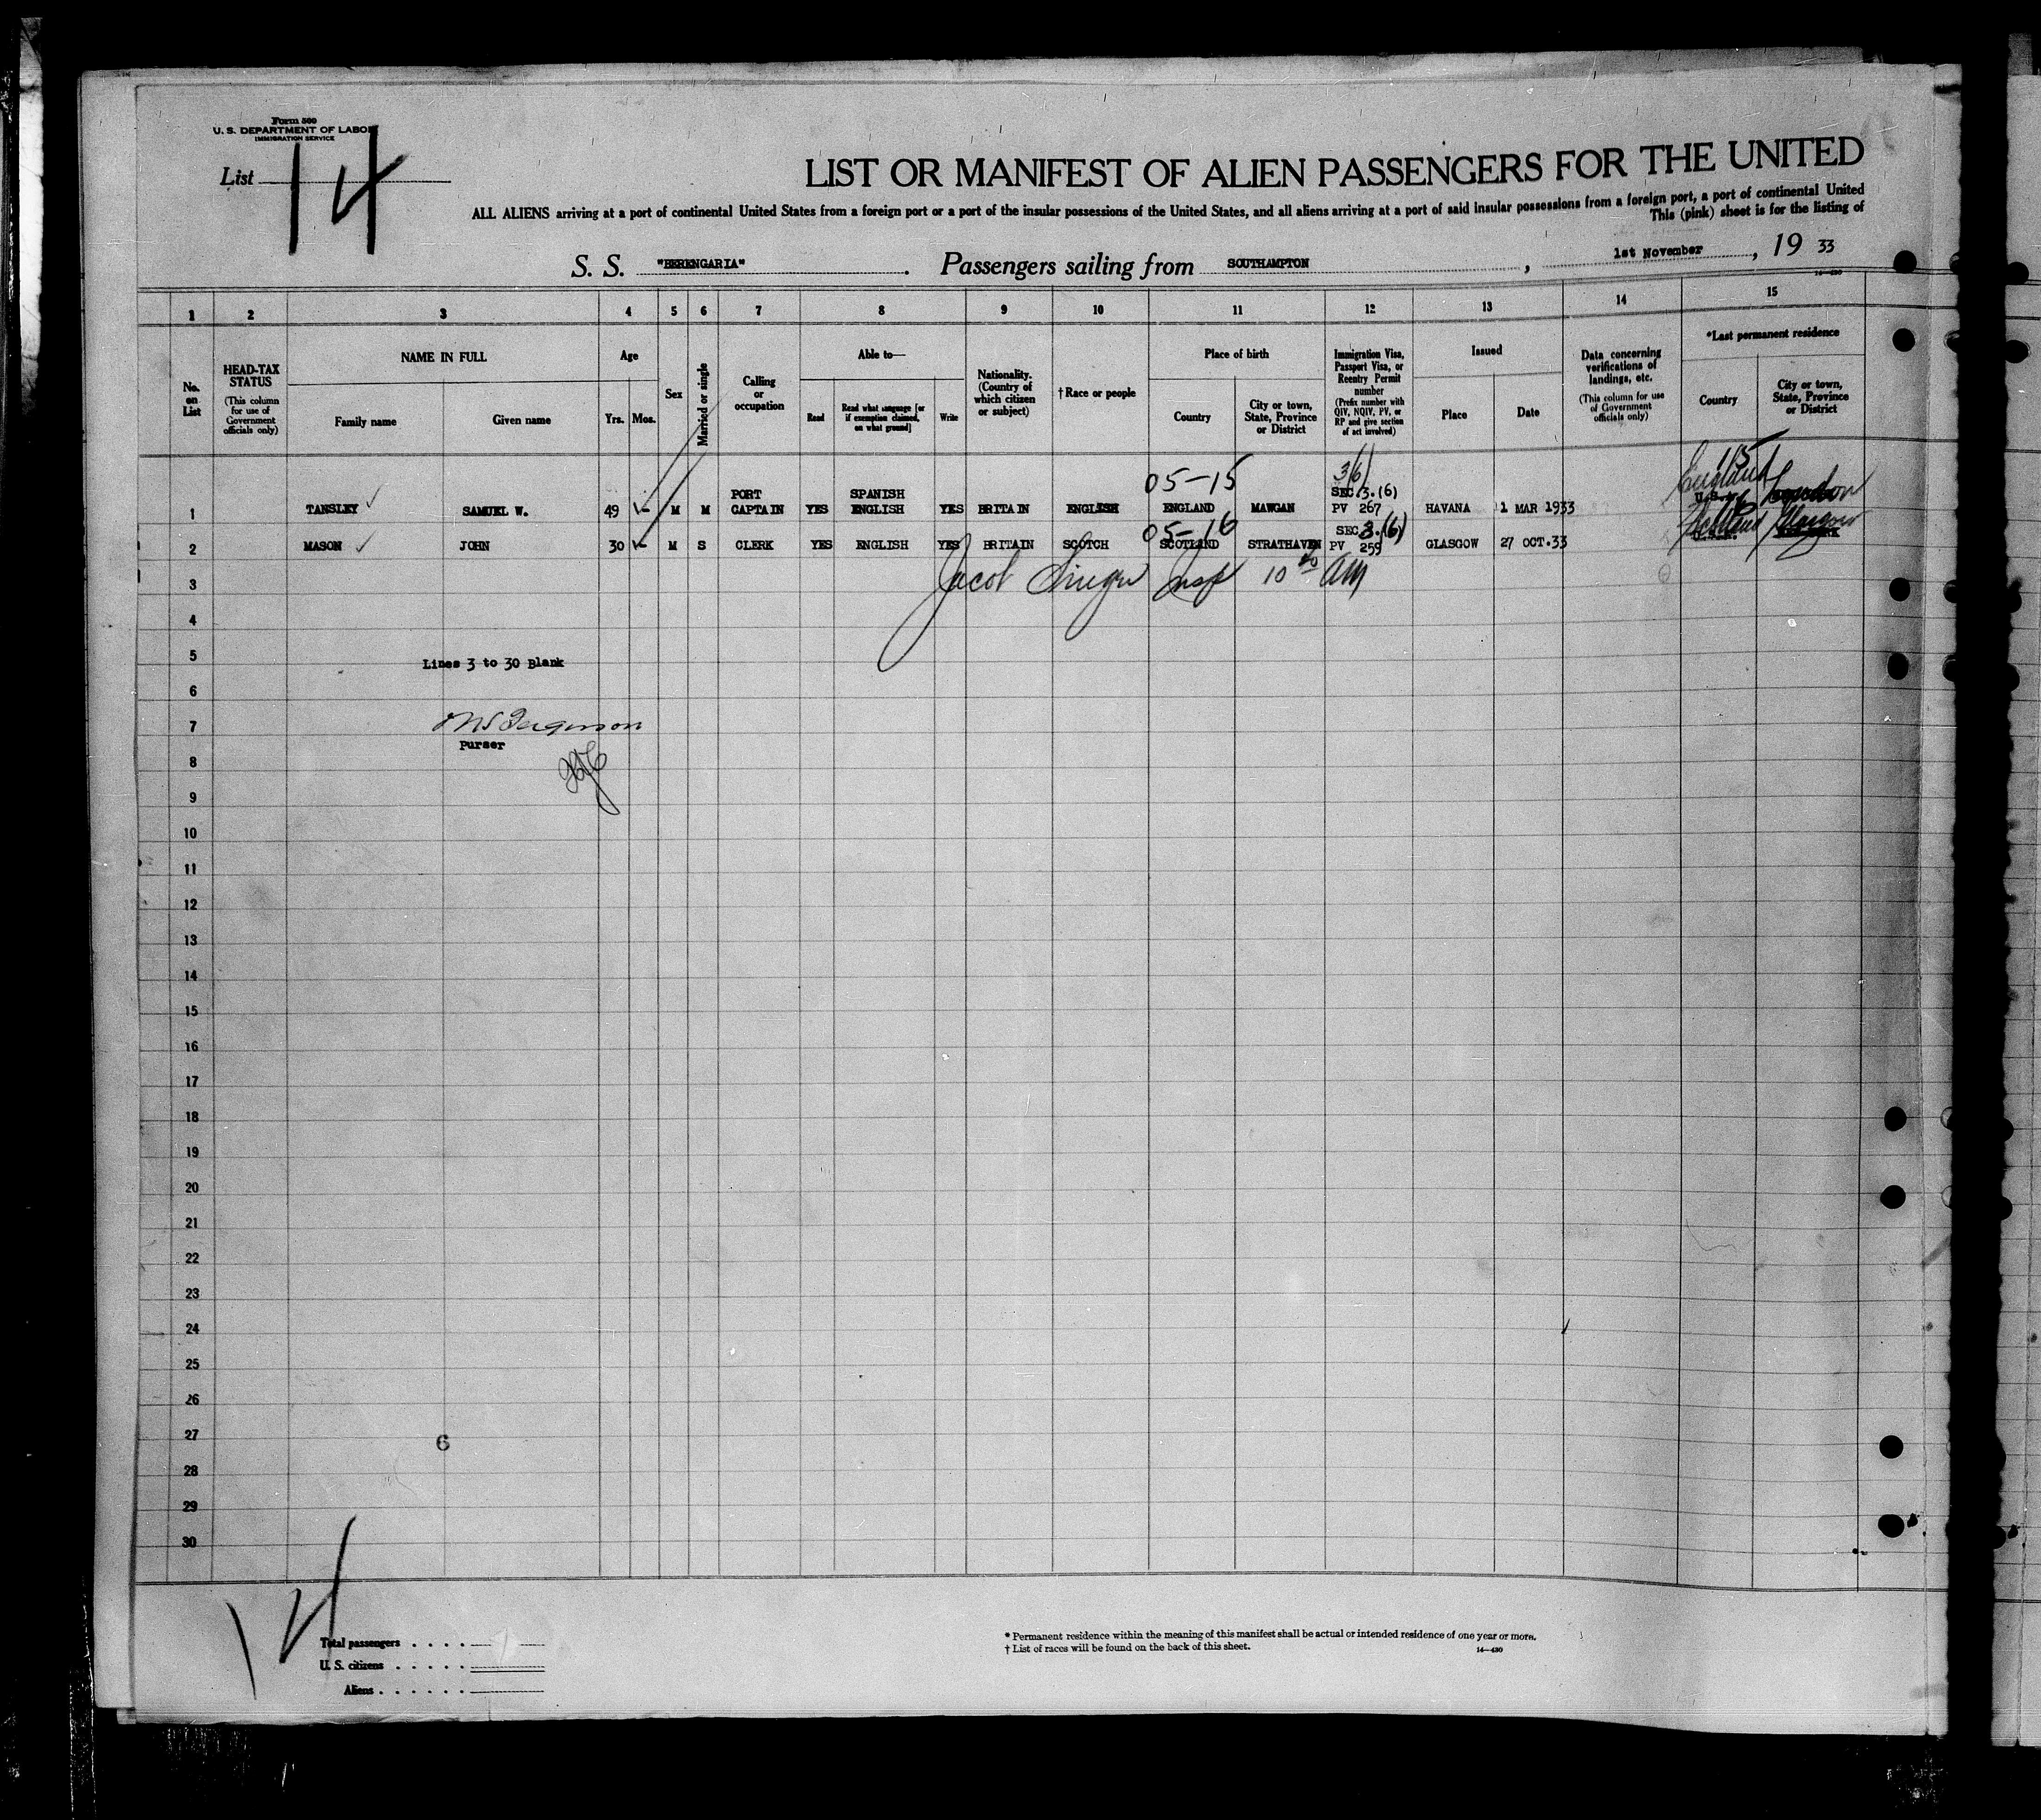 Form 500
U. S. DEPARTMENT OF LABOR
IMMIGRATION SERVICE
List 14
LIST OR MANIFEST OF ALIEN PASSENGERS FOR THE UNITED
ALL ALIENS arriving at a port of continental United States from a foreign port or a port of the insular possessions of the United States, and all aliens arriving at a port of said insular possessions from a foreign port, a port of continental United
This (pink) sheet is for the listing of
S. S. "BERENGARIA" . Passengers sailing from SOUTHAMPTON , 1st November , 19 33
14—430
1 2 3 4 5 6 7 8 9 10 11 12 13 14 15
No. on List
HEAD-TAX STATUS
(This column for use of Government officials only)
NAME IN FULL
Family name Given name
Age
Yrs. Mos.
Sex
Married or single
Calling or occupation
Able to—
Read Read what language [or if exemption claimed, on what ground] Write
Nationality. (Country of which citizen or subject)
† Race or people
Place of birth
Country City or town, State, Province or District
Immigration Visa, Passport Visa, or Reentry Permit number
(Prefix number with QIV, NQIV, PV, or RP and give section of act involved)
Issued
Place Date
Data concerning verifications of landings, etc.
(This column for use of Government officials only)
*Last permanent residence
Country City or town, State, Province or District
05-15 3(6) 15
PORT SPANISH SEC.3.(6) England London
1 TANSLEY SAMUEL W. 49 M M CAPTAIN YES ENGLISH YES BRITAIN ENGLISH ENGLAND MAWGAN PV 267 HAVANA 1 MAR 1933 U.S.
05-16 SEC 3.(6) Scotland Glasgow
2 MASON JOHN 30 M S CLERK YES ENGLISH YES BRITAIN SCOTCH SCOTLAND STRATHAVEN PV 259 GLASGOW 27 OCT.33
3 Jacob Insp 10 am
4
5 Lines 3 to 30 Blank
6
7 Ferguson
Purser
8
9
10
11
12
13
14
15
16
17
18
19
20
21
22
23
24
25
26
27 6
28
29
30
14
Total passengers . . . .
U. S. citizens . . . . .
Aliens . . . . . .
* Permanent residence within the meaning of this manifest shall be actual or intended residence of one year or more.
† List of races will be found on the back of this sheet.
14—430